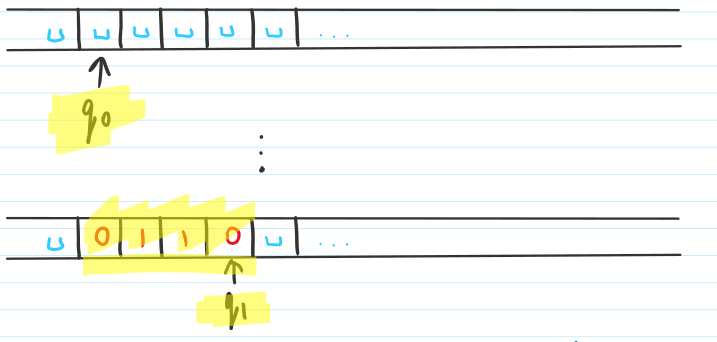 ⊔ ⊔ ⊔ ⊔ ⊔ ⊔ ...
q0
⋮
⊔ 0 1 1 0 ⊔ ...
q1